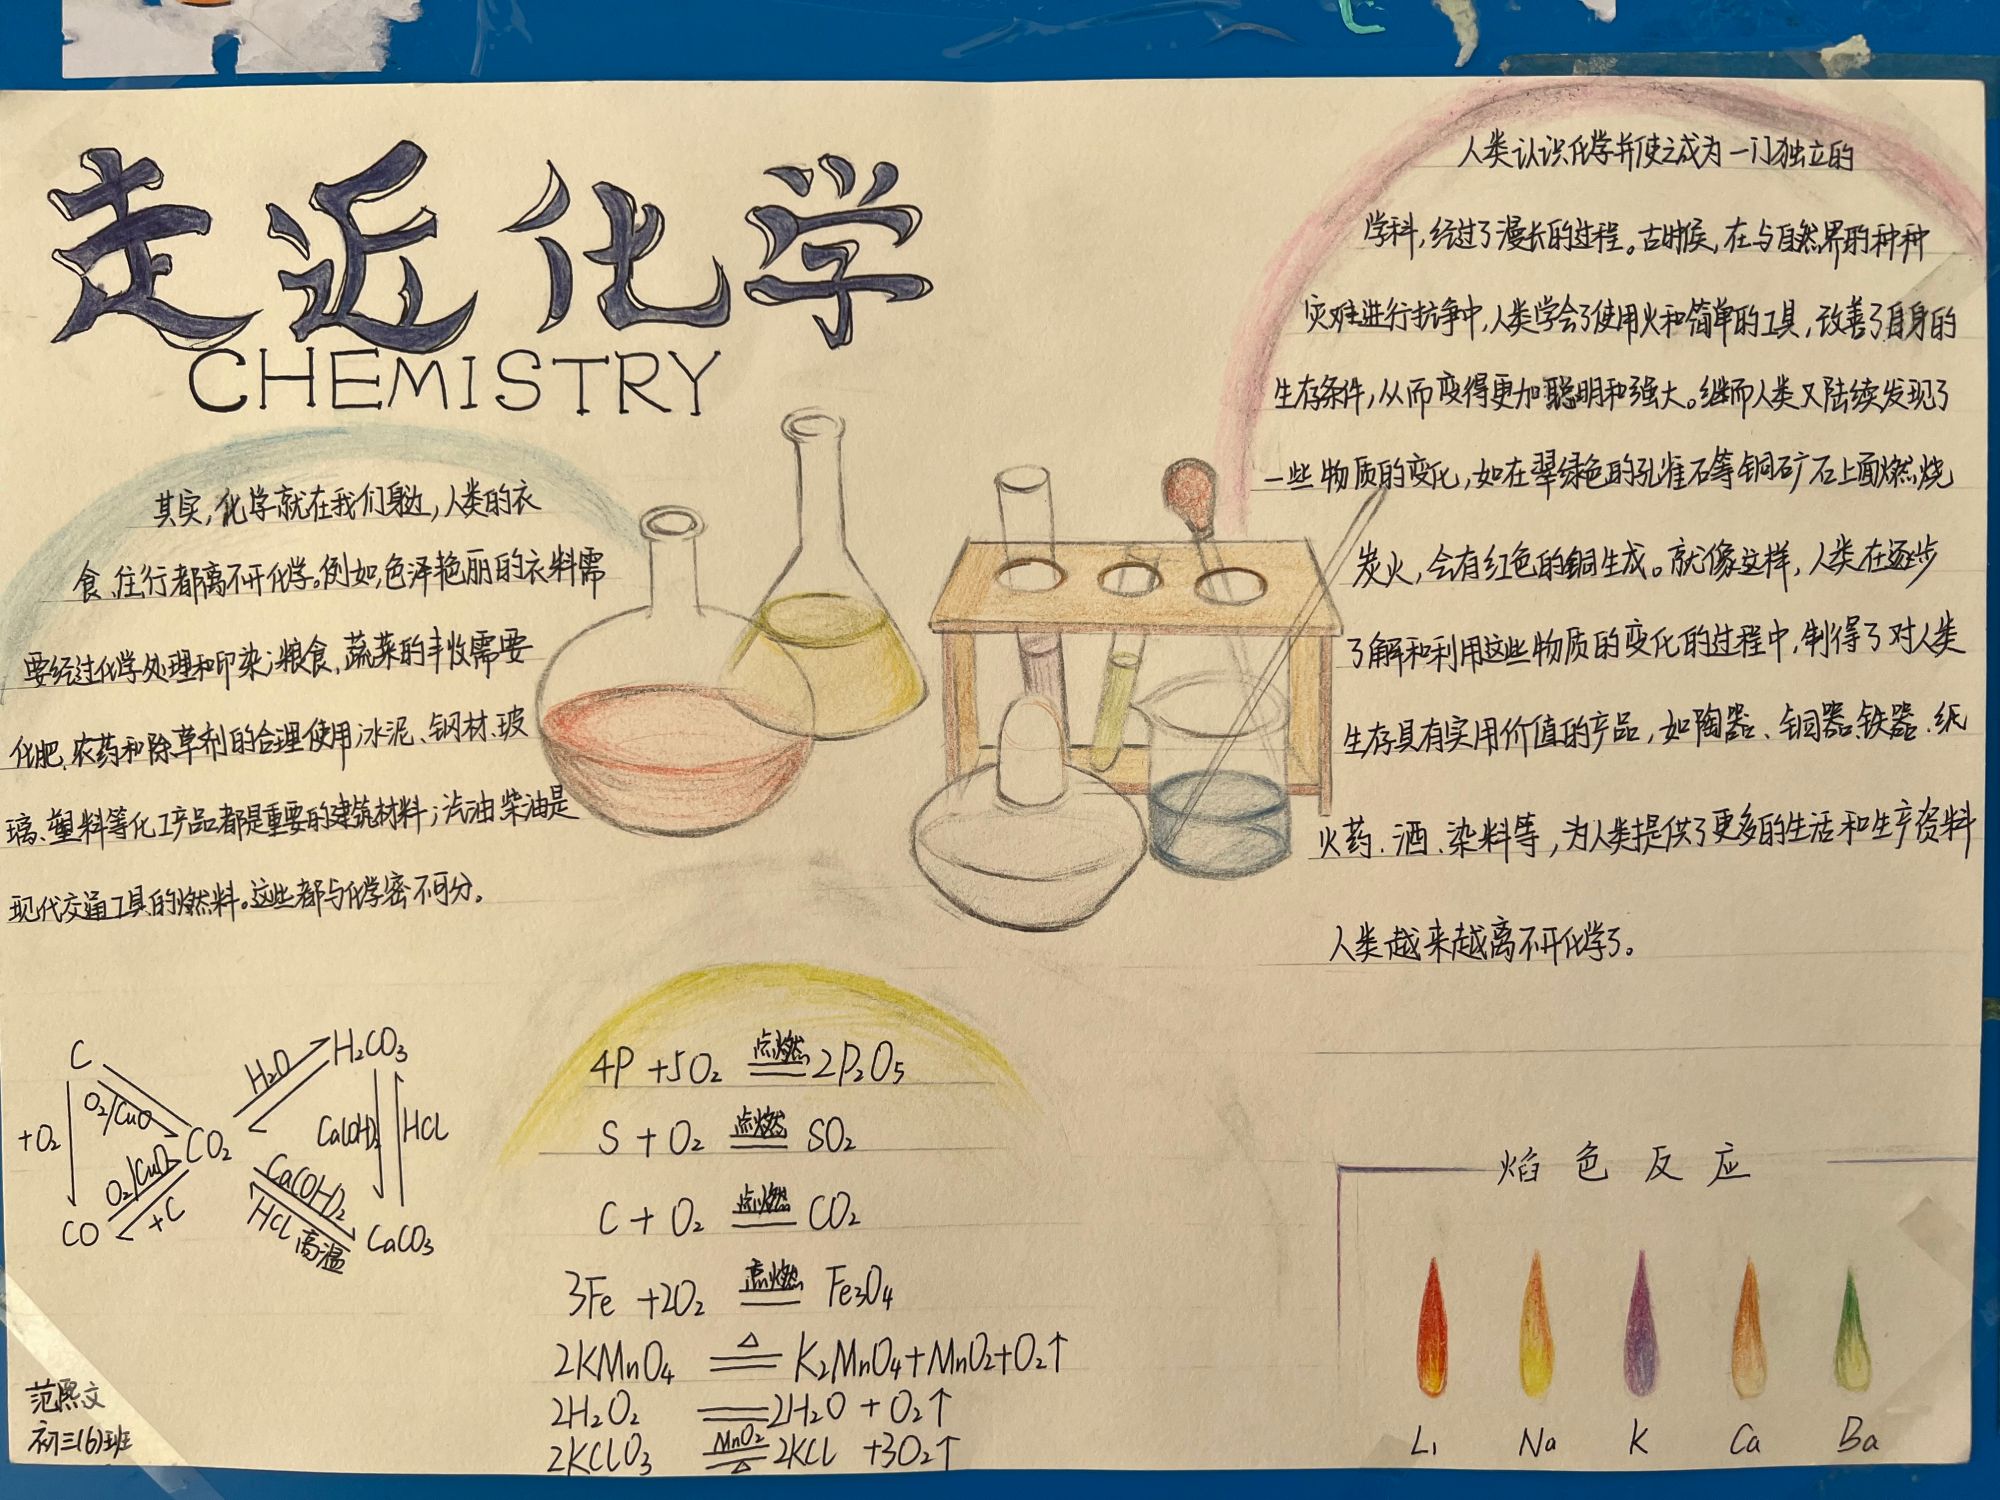 走近化学
CHEMISTRY
其实，化学就在我们身边，人类的衣
食、住行都离不开化学。例如，色泽艳丽的衣料需
要经过化学处理和印染；粮食、蔬菜的丰收需要
化肥、农药和除草剂的合理使用；水泥、钢材、玻
璃、塑料等化工产品都是重要的建筑材料；汽油、柴油是
现代交通工具的燃料。这些都与化学密不可分。
人类认识化学并使之成为一门独立的
学科，经过了漫长的过程。古时候，在与自然界的种种
灾难进行抗争中，人类学会了使用火和简单的工具，改善了自身的
生存条件，从而变得更加聪明和强大。继而人类又陆续发现了
一些物质的变化，如在翠绿色的孔雀石等铜矿石上面燃烧
炭火，会有红色的铜生成。就像这样，人类在逐步
了解和利用这些物质的变化的过程中，制得了对人类
生存具有实用价值的产品，如陶器、铜器、铁器、纸
火药、酒、染料等，为人类提供了更多的生活和生产资料
人类越来越离不开化学了。
C
+O₂
O₂/CuO
CO₂
O₂/CuO
+C
CO
H₂O
H₂CO₃
Ca(OH)₂
HCl
Ca(OH)₂
HCl 高温
CaCO₃
4P+5O₂ 点燃 2P₂O₅
S+O₂ 点燃 SO₂
C+O₂ 点燃 CO₂
3Fe+2O₂ 点燃 Fe₃O₄
2KMnO₄ △ K₂MnO₄+MnO₂+O₂↑
2H₂O₂ == 2H₂O+O₂↑
2KClO₃ MnO₂ △ 2KCl+3O₂↑
焰色反应
Li Na K Ca Ba
范熙文
初三(6)班